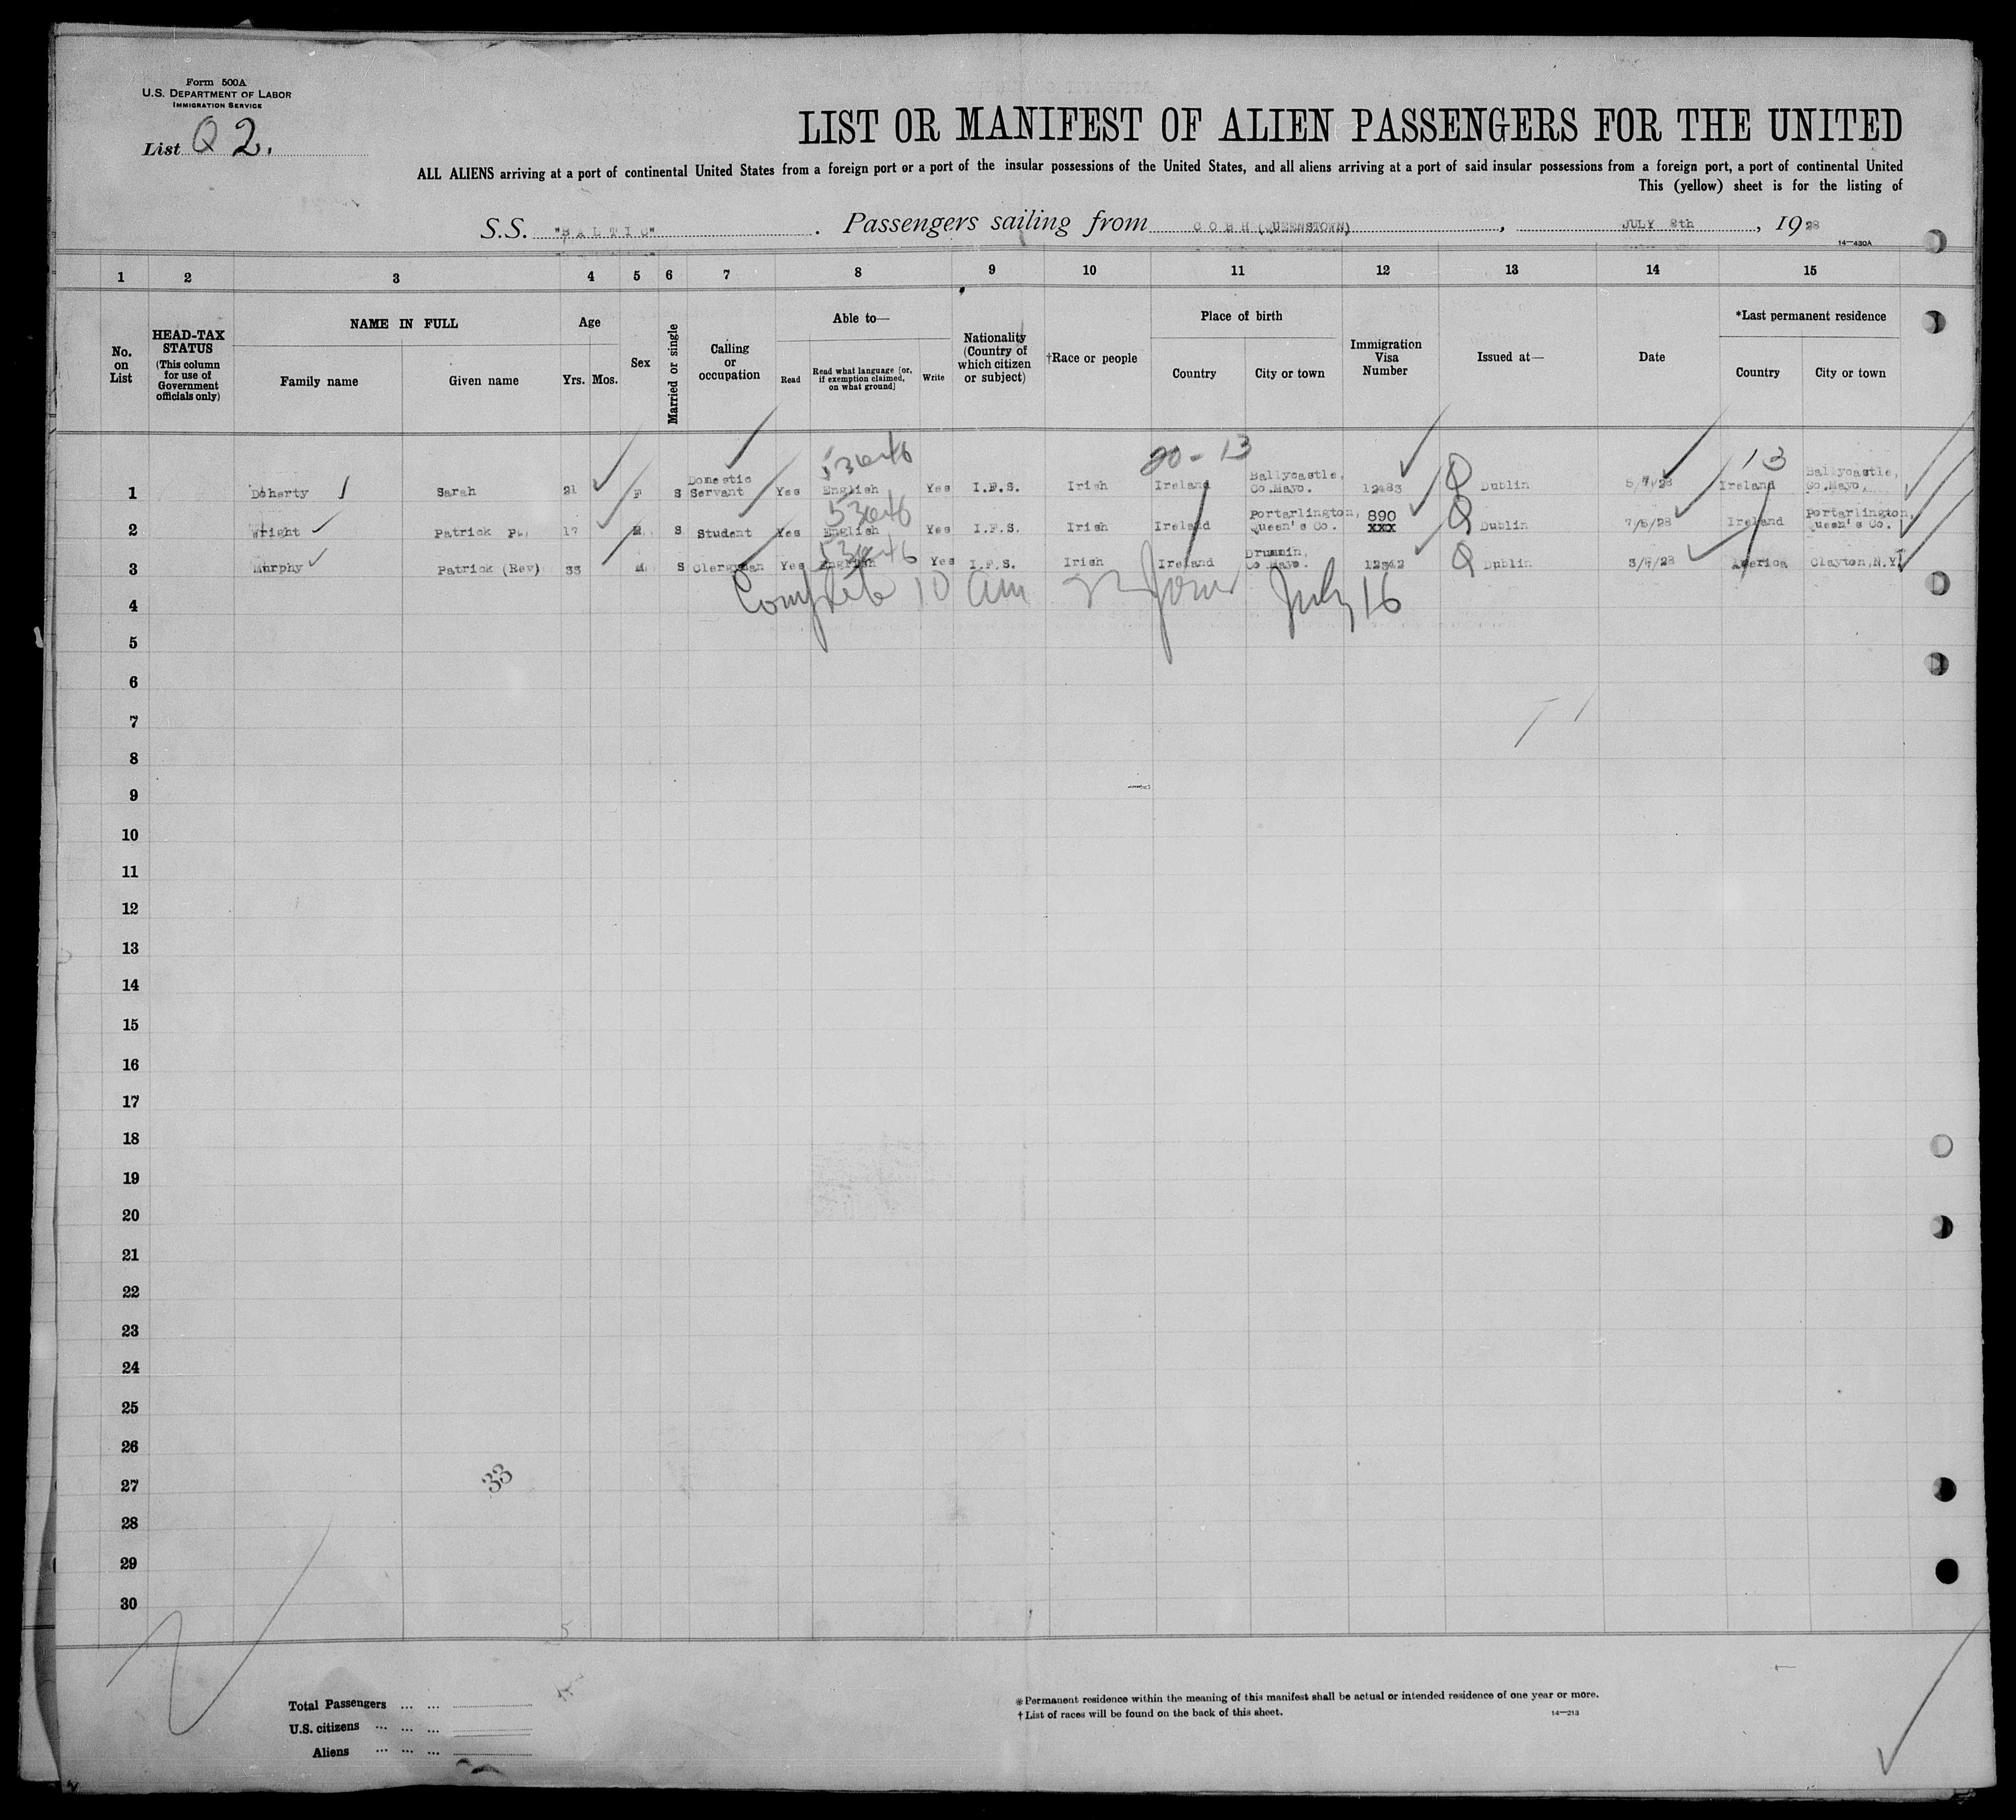 Form 500A
U.S. DEPARTMENT OF LABOR
IMMIGRATION SERVICE
List Q 2.
LIST OR MANIFEST OF ALIEN PASSENGERS FOR THE UNITED
ALL ALIENS arriving at a port of continental United States from a foreign port or a port of the insular possessions of the United States, and all aliens arriving at a port of said insular possessions from a foreign port, a port of continental United
This (yellow) sheet is for the listing of
S.S. "BALTIC". Passengers sailing from COBH (QUEENSTOWN), JULY 8th, 1928
14—430A
1 2 3 4 5 6 7 8 9 10 11 12 13 14 15
No. on List
HEAD-TAX STATUS (This column for use of Government officials only)
NAME IN FULL
Family name Given name
Age
Yrs. Mos.
Sex
Married or single
Calling or occupation
Able to—
Read Read what language [or, if exemption claimed, on what ground] Write
Nationality (Country of which citizen or subject)
†Race or people
Place of birth
Country City or town
Immigration Visa Number
Issued at—
Date
*Last permanent residence
Country City or town
20 - 13 13
1 Doherty Sarah 21 F S Domestic Servant Yes English Yes I.F.S. Irish Ireland Ballycastle, Co.Mayo. 12483 Q Dublin 28 Ireland Ballycastle, Co.Mayo,
2 Wright Patrick 17 M S Student Yes English Yes I.F.S. Irish Ireland Portarlington, Queen's Co. 890 XXX Q Dublin 28 Ireland Portarlington, Queen's Co.
3 Murphy Patrick (Rev) 33 M S Clergyman Yes English Yes I.F.S. Irish Ireland Drummin, Co Mayo. 12342 Q Dublin 28 America Clayton,N.Y.
Complete 10 am July 16
4
5
6
7
8
9
10
11
12
13
14
15
16
17
18
19
20
21
22
23
24
25
26
27
33
28
29
30
Total Passengers ... ...
U.S. citizens ... ... ...
Aliens ... ... ...
*Permanent residence within the meaning of this manifest shall be actual or intended residence of one year or more.
†List of races will be found on the back of this sheet.
14—213